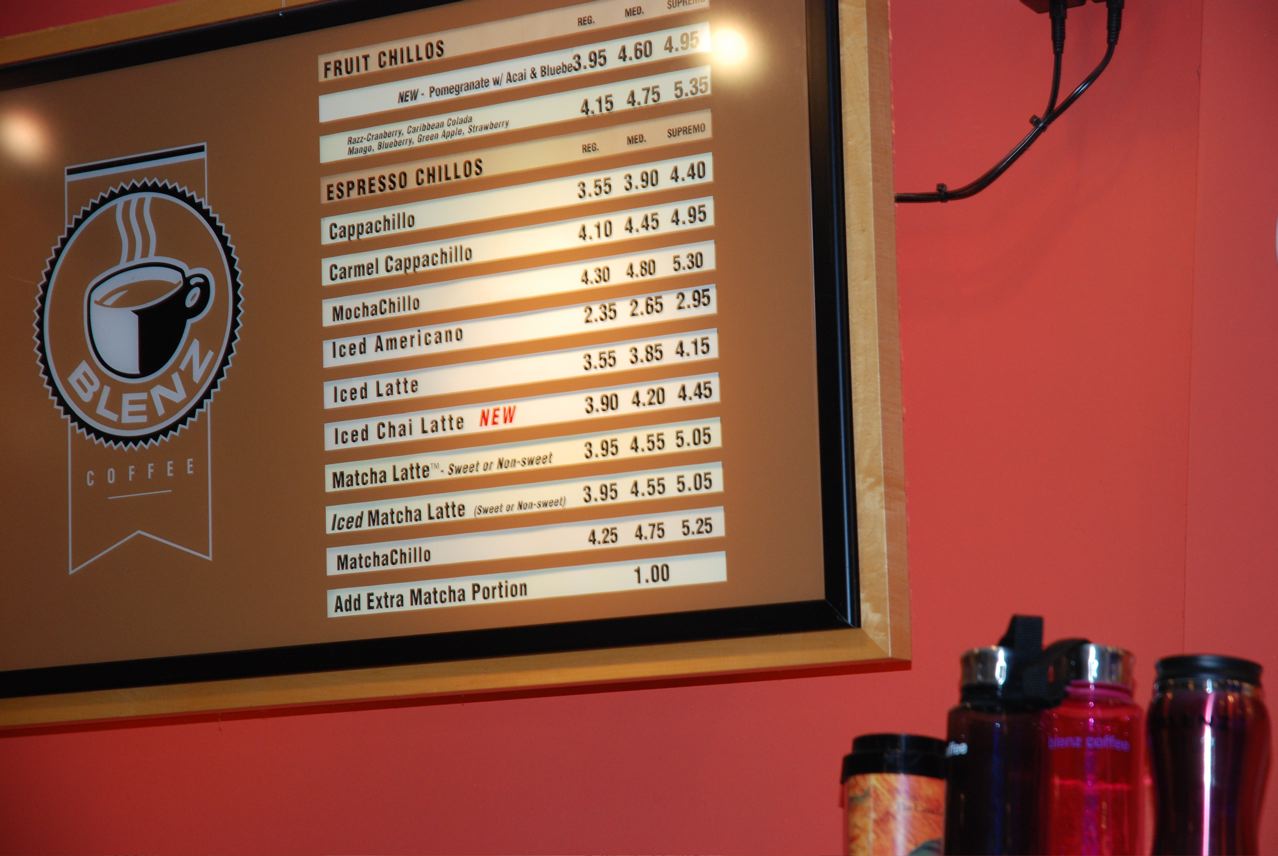 REG. MED. SUPREMO
FRUIT CHILLOS
NEW - Pomegranate w/ Acai & Bluebe 3.95 4.60 4.95
Razz-Cranberry, Caribbean Colada
Mango, Blueberry, Green Apple, Strawberry
4.15 4.75 5.35
ESPRESSO CHILLOS REG. MED. SUPREMO
Cappachillo 3.55 3.90 4.40
Carmel Cappachillo 4.10 4.45 4.95
MochaChillo 4.30 4.80 5.30
Iced Americano 2.35 2.65 2.95
Iced Latte 3.55 3.85 4.15
Iced Chai Latte NEW 3.90 4.20 4.45
Matcha Latte™ - Sweet or Non-sweet 3.95 4.55 5.05
Iced Matcha Latte (Sweet or Non-sweet) 3.95 4.55 5.05
MatchaChillo 4.25 4.75 5.25
Add Extra Matcha Portion 1.00
BLENZ
COFFEE
ffee
blenz coffee